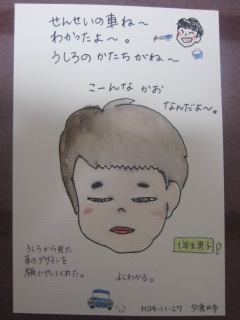 せんせいの車ね～
わかったよ～。
うしろのかたちがね～
こーんな かお
なんだよ～。
1年生男子
うしろから見た
車のデザインを
顔でやってくれた。
よくわかる。
H24・11・27